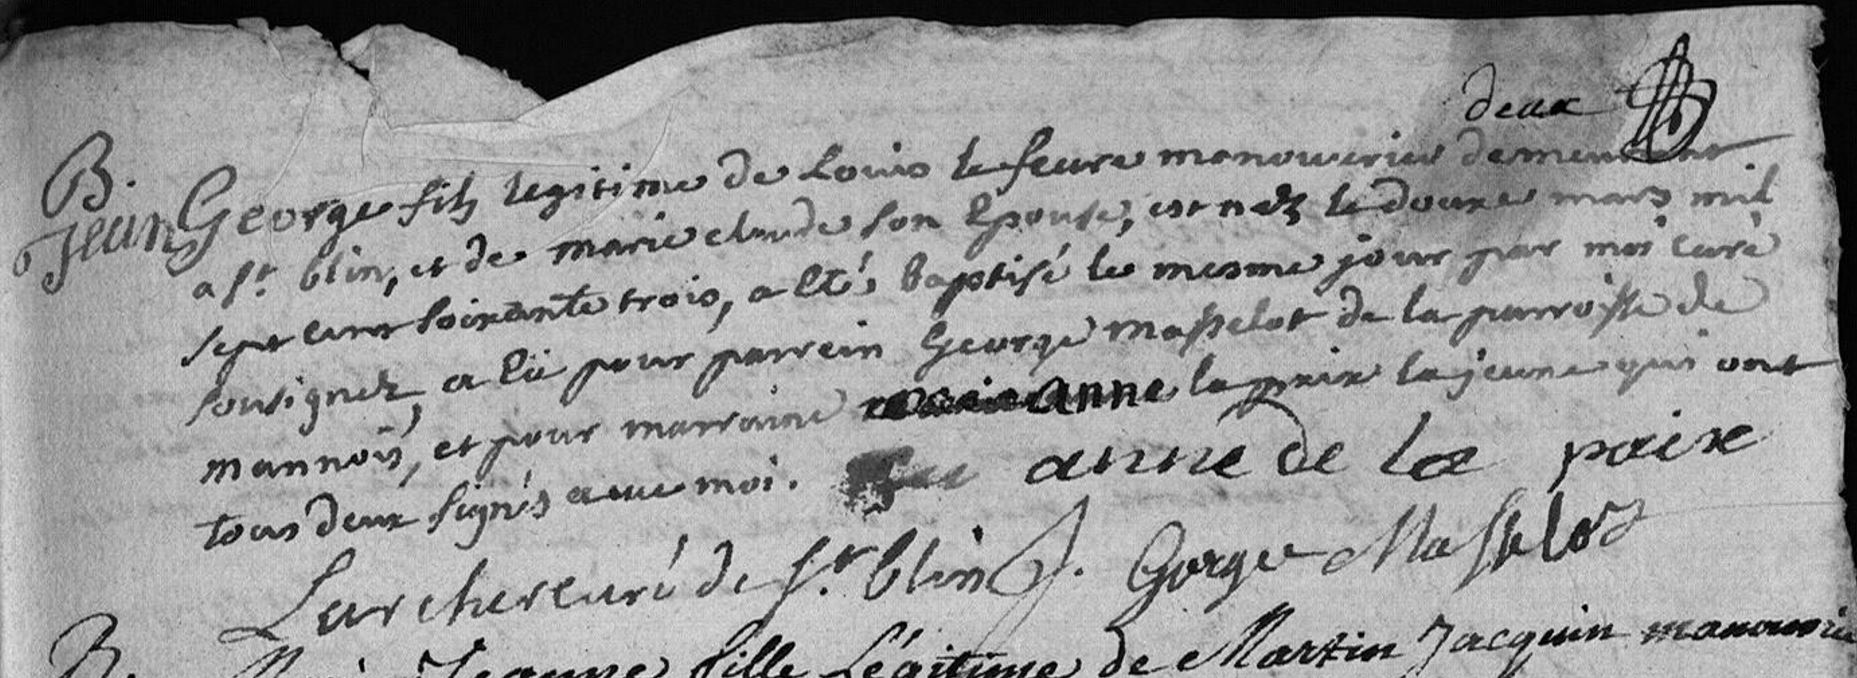 deux
B.
Jean George fils legitime de Louis le feure manouvrier demeurant
a st. blin, et de marie claude son Epouse, est nez le douze mars mil
sept cent soixante trois, a Eté baptisé le mesme jour par moi curé
sousignez, a Eü pour parrein George Masselot de la parroisse de
mannois, et pour marraine anne la paix la jeune qui ont
tous deux signés avec moi. anne de la paix
Larcher curé de st. blin George Masselot
B. Jeanne fille Légitime de Martin Jacquin manouvrier